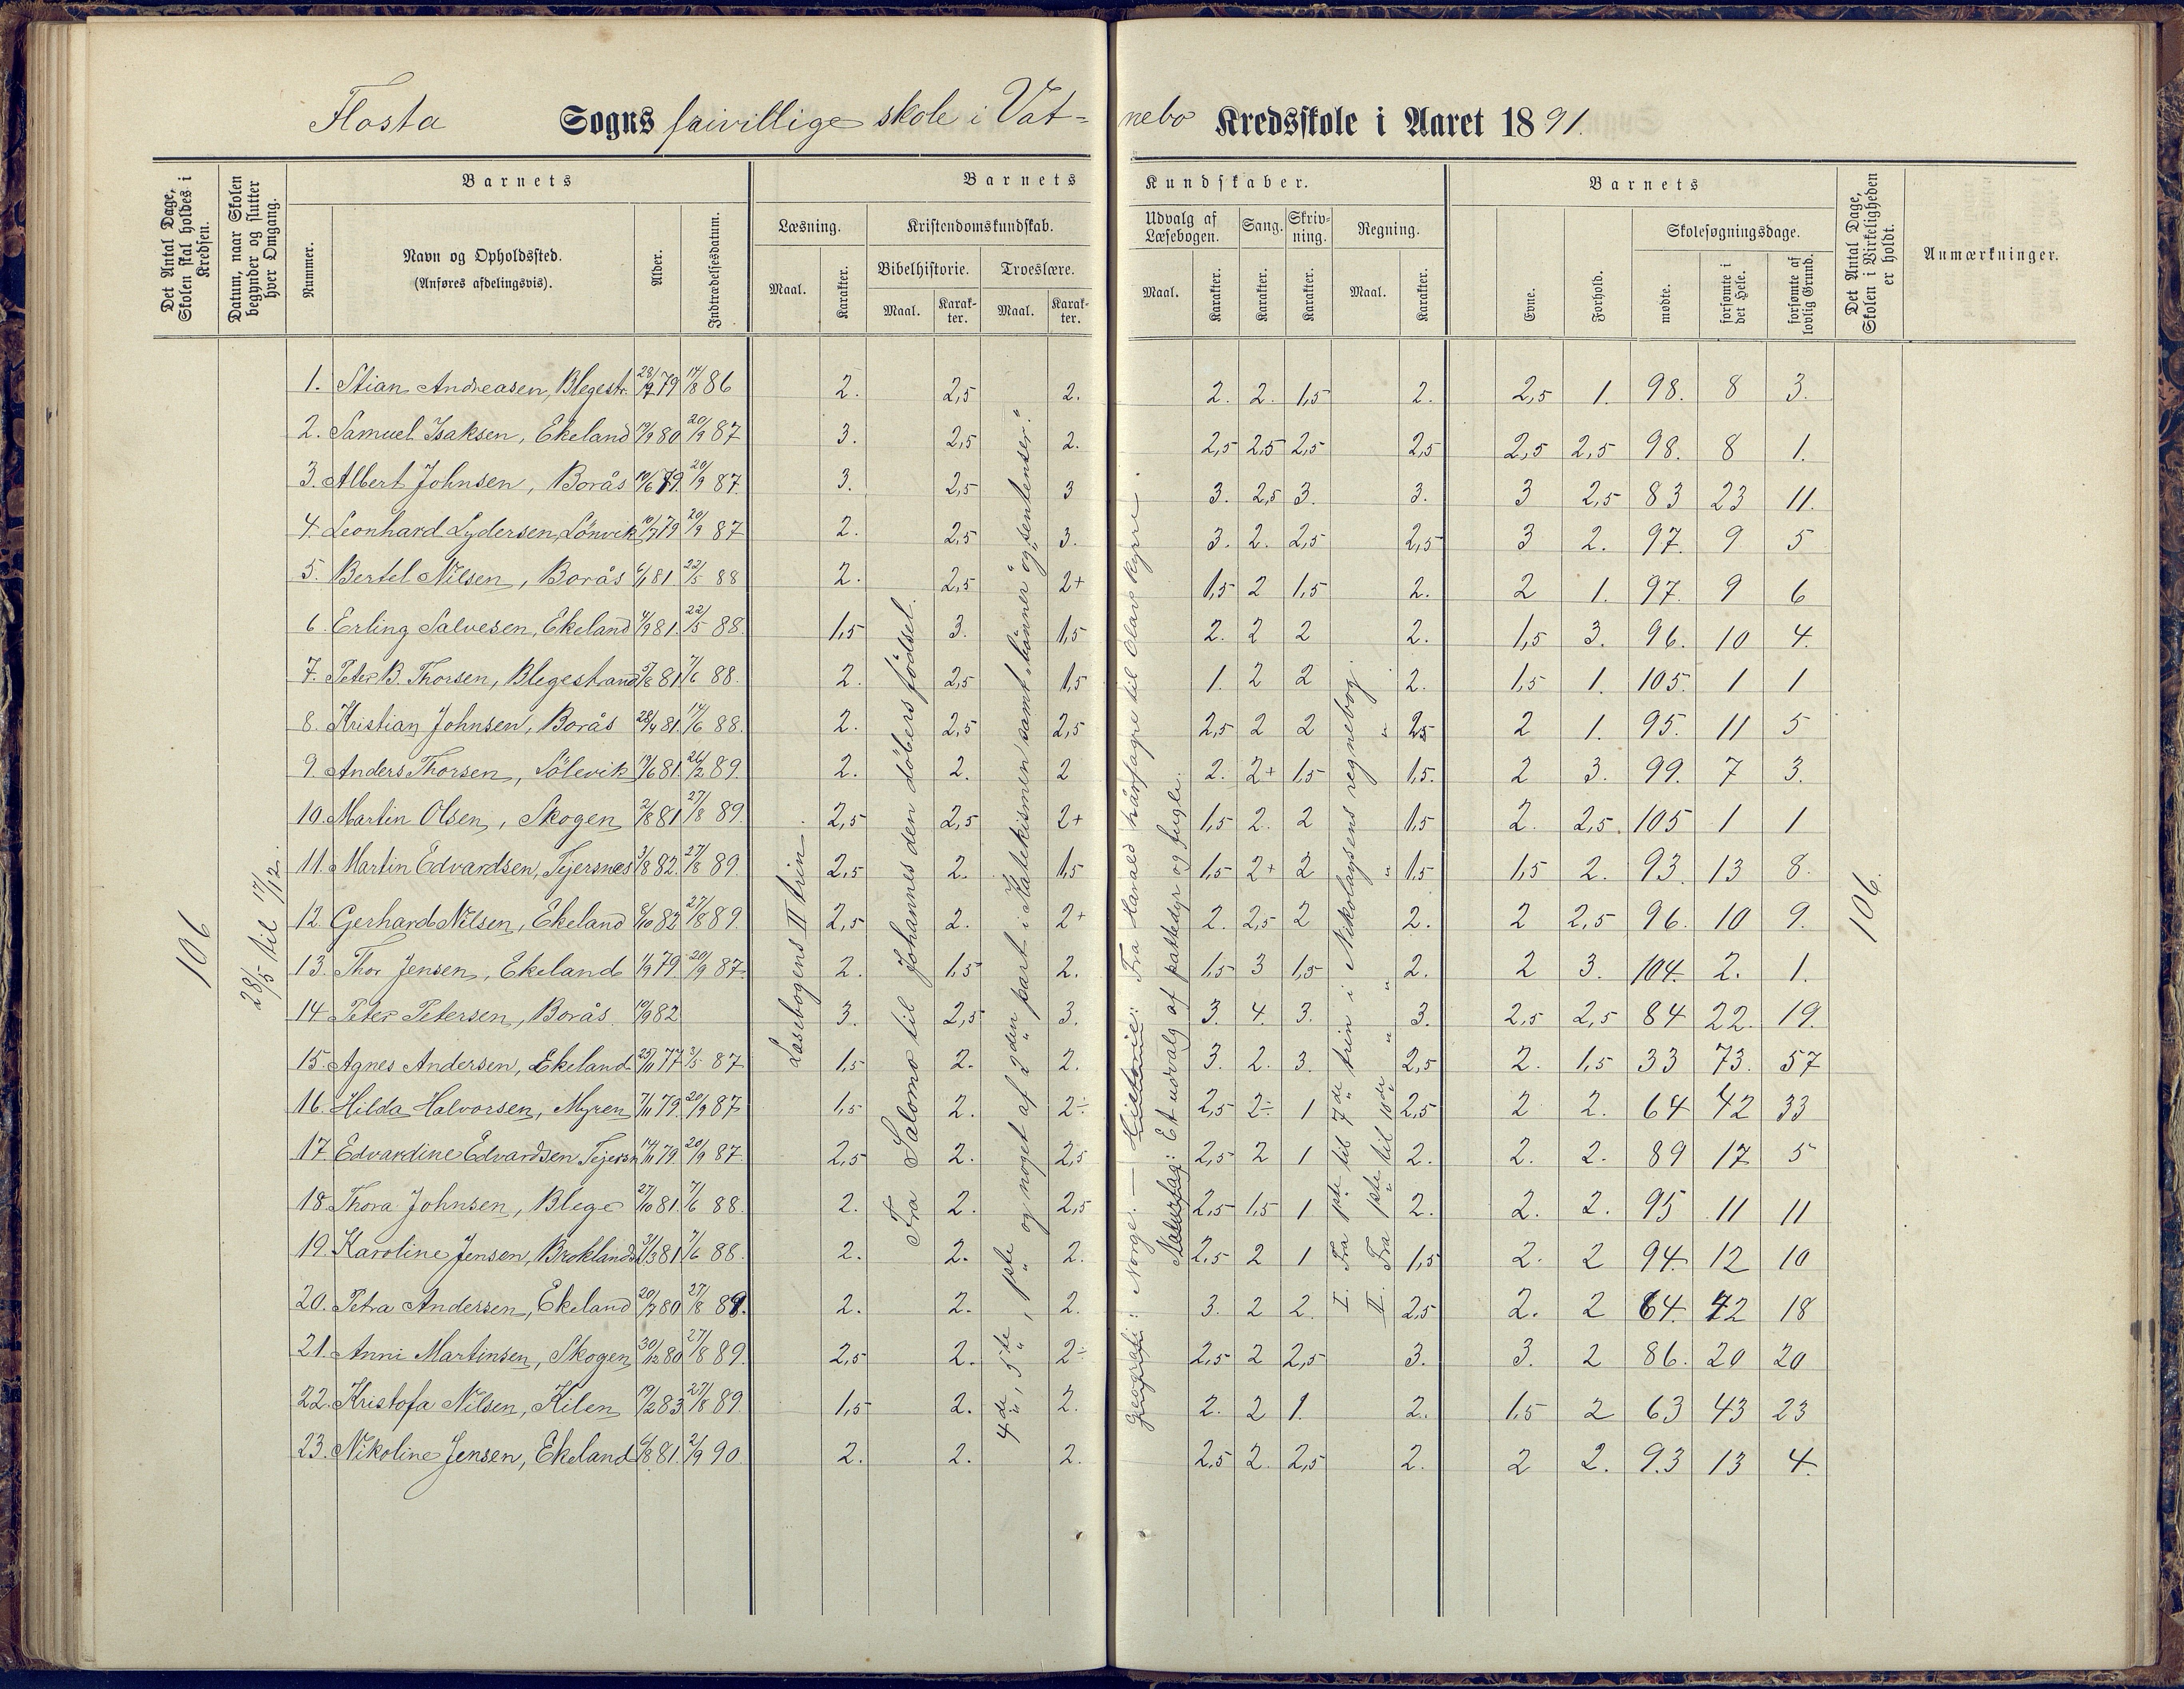 Flosta Sogns frivillige skole i Vatnebo Kredsskole i Aaret 1891.
Det Antal Dage, Skolen skal holdes i Kredsen.
Datum, naar Skolen begynder og slutter hver Omgang.
Barnets
Nummer.
Navn og Opholdssted.
(Anføres afdelingsvis).
Alder.
Indtrædelsesdatum.
Barnets Kundskaber.
Læsning.
Maal.
Karakter.
Kristendomskundskab.
Bibelhistorie.
Maal.
Karakter.
Troeslære.
Maal.
Karakter.
Udvalg af Læsebogen.
Maal.
Karakter.
Sang.
Karakter.
Skrivning.
Karakter.
Regning.
Maal.
Karakter.
Barnets
Evne.
Forhold.
Skolesøgningsdage.
mødte.
forsømte i det Hele.
forsømte af lovlig Grund.
Det Antal Dage, Skolen i Virkeligheden er holdt.
Anmærkninger.
106
28/5 til 17/12.
1. Stian Andreasen, Blegestr. 79 14/8 86 2. 2,5 2. 2. 2. 1,5 2. 2,5 1. 98. 8 3.
2. Samuel Isaksen, Ekeland 80 20/9 87 3. 2,5 2. 2,5 2,5 2,5 2,5 2,5 2,5 98. 8 1.
3. Albert Johnsen, Borås 10/6 79. 20/9 87. 3. 2,5 3 3. 2,5 3. 3. 3 2,5 83 23 11.
4. Leonhard Lydersen, Lönvik 10/7 79 20/9 87 2. 2,5 3. 3. 2. 2,5 2,5 3 2. 97. 9 5
5. Bertel Nilsen, Borås 6/1 81. 22/5 88 2. 2,5 2+ 1,5 2 1,5 2. 2 1. 97. 9 6
6. Erling Salvesen, Ekeland 4/9 81. 22/5 88. 1,5 3. 1,5 2. 2 2 2. 1,5 3. 96. 10 4.
7. Peter B. Thorsen, Blegestrand 81 7/6 88. 2. 2,5 1,5 1. 2 2 2. 1,5 1. 105. 1 1
8. Kristian Johnsen, Borås 28/4 81. 14/6 88. 2. 2,5 2,5 2,5 2 2 2,5 2 1. 95. 11 5
9. Anders Thorsen, Sölevik 81. 26/2 89. 2. 2. 2 2. 2+ 1,5 1,5. 2 3. 99. 7 3.
10. Martin Olsen, Skogen 2/8 81 27/8 89. 2,5 2,5 2+ 1,5 2. 2 1,5 2. 2,5. 105 1 1
11. Martin Edvardsen, Tejersnæs 3/8 82. 27/8 89. 2,5 2. 1,5 1,5 2+ 2 1,5 1,5 2. 93. 13 8.
12. Gerhard Nilsen, Ekeland 82 27/8 89. 2,5 2. 2+ 2. 2,5 2 2. 2 2,5 96. 10 9.
13. Thor Jensen, Ekeland 1/9 79. 20/9 87. 2. 1,5 2. 1,5 3 1,5 2. 2 3. 104. 2. 1.
14 Peter Petersen, Borås. 10/9 82 3. 2,5 3. 3. 4. 3. 3. 2,5 2,5 84 22. 19.
15. Agnes Andersen, Ekeland 77 3/5 87 1,5 2. 2. 3. 2. 3. 2,5 2. 1,5 33 73. 57
16. Hilda Halvorsen, Myren 7/11 79. 20/9 87 1,5 2. 2÷ 2,5 2÷ 1 2,5 2 2. 64 42 33
17. Edvardine Edvardsen Tejersn 14/11 79. 20/9 87 2,5 2. 2,5 2,5 2 1 2. 2. 2. 89 17 5
18. Thora Johnsen, Blege 27/10 81. 7/6 88. 2. 2. 2,5 2,5 1,5 1 2. 2. 2. 95 11 11
19. Karoline Jensen, Broklands 81 7/6 88. 2. 2. 2. 2,5 2 1 1,5 2. 2 94. 12 10
20. Petra Andersen, Ekeland 20/7 80 27/8 89. 2. 2. 2. 3. 2 2. 2,5 2. 2 64. 42 18
21. Anni Martinsen, Skogen 30/12 80 27/8 89. 2,5 2. 2÷ 2,5 2 2,5 3. 3. 2 86. 20 20
22. Kristofa Nilsen, Kilen 19/2 83 27/8 89 1,5 2. 2. 2. 2 1. 2. 1,5 2 63 43 23
23. Nikoline Jensen, Ekeland 6/8 81. 2/9 90. 2. 2. 2. 2,5 2. 2,5 2. 2 2. 93 13 4.
Læsebogens II trin
Fra Salomo til Johannes den døbers födsel.
4de, 5te, 1ste og noget af 2den part i Katekismen samt "bönner" og "sentenser".
Geografi: Norge. — Historie: Fra Harald hårfagre til Olav kyrre.
Naturfag: Et udvalg af pattedyr og fugle.
I. Fra 1ste til 7de trin i Nikolaysens regnebog.
II. Fra 1ste til 10de " " " "
106.